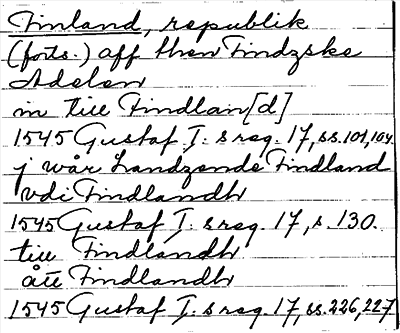 Finland, republik
(forts.) aff then Findzske
Adelen
in till Findlan[d]
1545 Gustaf I:s reg. 17, ss. 101, 104.
j wår Landzende Findland
vdi Findlandh
1545 Gustaf I:s reg. 17, s. 130.
till Findlandh
ått Findlandh
1545 Gustaf I:s reg. 17, ss. 226, 227